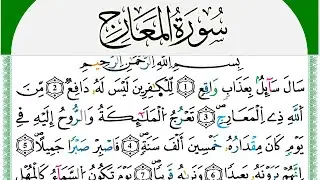 سُورَةُ الْمَعَارِجِ
بِسْمِ اللّٰهِ الرَّحْمٰنِ الرَّحِيْمِ
سَاَلَ سَآئِلٌۢ بِعَذَابٍ وَّاقِعٍ ﴿1﴾ لِّلْكٰفِرِيْنَ لَيْسَ لَهٗ دَافِعٌ ﴿2﴾ مِّنَ
اللّٰهِ ذِي الْمَعَارِجِ ﴿3﴾ تَعْرُجُ الْمَلٰٓئِكَةُ وَالرُّوْحُ اِلَيْهِ فِيْ
يَوْمٍ كَانَ مِقْدَارُهٗ خَمْسِيْنَ اَلْفَ سَنَةٍ ﴿4﴾ فَاصْبِرْ صَبْرًا جَمِيْلًا ﴿5﴾
اِنَّهُمْ يَرَوْنَهٗ بَعِيْدًا ﴿6﴾ وَّنَرٰىهُ قَرِيْبًا ﴿7﴾ يَوْمَ تَكُوْنُ السَّمَآءُ كَالْمُهْلِ